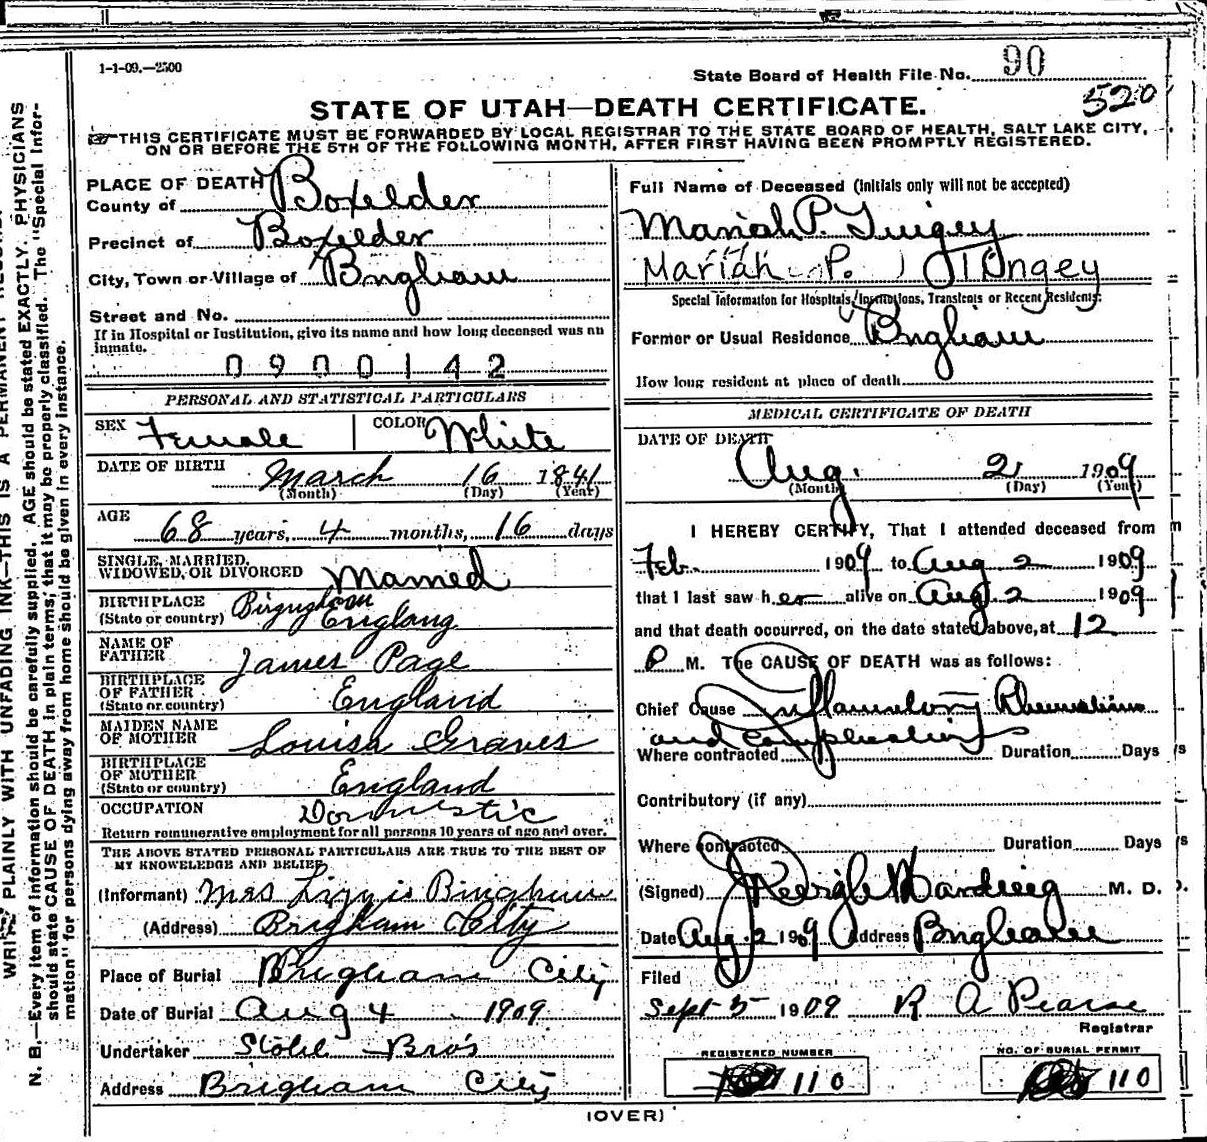 1-1-09.—2500
State Board of Health File No. 90
520
STATE OF UTAH—DEATH CERTIFICATE.
THIS CERTIFICATE MUST BE FORWARDED BY LOCAL REGISTRAR TO THE STATE BOARD OF HEALTH, SALT LAKE CITY,
ON OR BEFORE THE 5TH OF THE FOLLOWING MONTH, AFTER FIRST HAVING BEEN PROMPTLY REGISTERED.
PLACE OF DEATH
County of Boxelder
Precinct of Boxelder
City, Town or Village of Brigham
Street and No.
If in Hospital or Institution, give its name and how long deceased was an
inmate.
0900142
PERSONAL AND STATISTICAL PARTICULARS
SEX Female COLOR White
DATE OF BIRTH March 16 1841
(Month) (Day) (Year)
AGE 68 years, 4 months, 16 days
SINGLE, MARRIED,
WIDOWED, OR DIVORCED Married
BIRTHPLACE
(State or country) England
NAME OF
FATHER James Page
BIRTHPLACE
OF FATHER
(State or country) England
MAIDEN NAME
OF MOTHER Louisa Graves
BIRTHPLACE
OF MOTHER
(State or country) England
OCCUPATION Domestic
Return remunerative employment for all persons 10 years of age and over.
THE ABOVE STATED PERSONAL PARTICULARS ARE TRUE TO THE BEST OF
MY KNOWLEDGE AND BELIEF
(Informant) Mrs Lizzie Bingham
(Address) Brigham City
Place of Burial Brigham City
Date of Burial Aug 4 1909
Undertaker Stohl Bros
Address Brigham City
Full Name of Deceased (Initials only will not be accepted)
Mariah P. Tingey
Mariah P. Tingey
Special Information for Hospitals, Institutions, Transients or Recent Residents:
Former or Usual Residence Brigham
How long resident at place of death
MEDICAL CERTIFICATE OF DEATH
DATE OF DEATH
Aug. 2 1909
(Month) (Day) (Year)
I HEREBY CERTIFY, That I attended deceased from
Feb. 1909 to Aug 2 1909
that I last saw her alive on Aug 2 1909
and that death occurred, on the date stated above, at 12
P M. The CAUSE OF DEATH was as follows:
Chief Cause Inflamatory Rheumatism
and Complications
Where contracted Duration Days
Contributory (if any)
Where contracted Duration Days
(Signed) M. D.
Date Aug 2 1909 Address Brigham
Filed
Sept 5 1909 R A Pearse
Registrar
REGISTERED NUMBER
110
NO. OF BURIAL PERMIT
110
(OVER)
WRITE PLAINLY WITH UNFADING INK—THIS IS A PERMANENT
N. B.—Every item of information should be carefully supplied. AGE should be stated EXACTLY. PHYSICIANS
should state CAUSE OF DEATH in plain terms, that it may be properly classified. The "Special Infor-
mation" for persons dying away from home should be given in every instance.